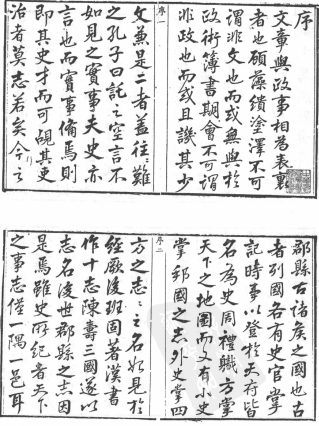 序
文章與政事相為表裏
者也顧藻繢塗澤不可
謂非文也而或無與於
政術簿書期會不可謂
非政也而或且譏其少
文兼是二者蓋往往難
之孔子曰託之空言不
如見之實事夫史亦
言也而實事備焉則
即其史才而可覘其吏
治者莫志若矣今之
郡縣古諸矦之國也古
者列國各有史官掌
記時事以登於天府皆
名為史周禮職方掌
天下之地圖而又有小史
掌邦國之志外史掌四
方之志志之名始見於
經厥後班固著漢書
作十志陳壽三國遂以
志名後世郡縣之志因
是焉雖史所紀者天下
之事志僅一隅一邑耳
序一
序二